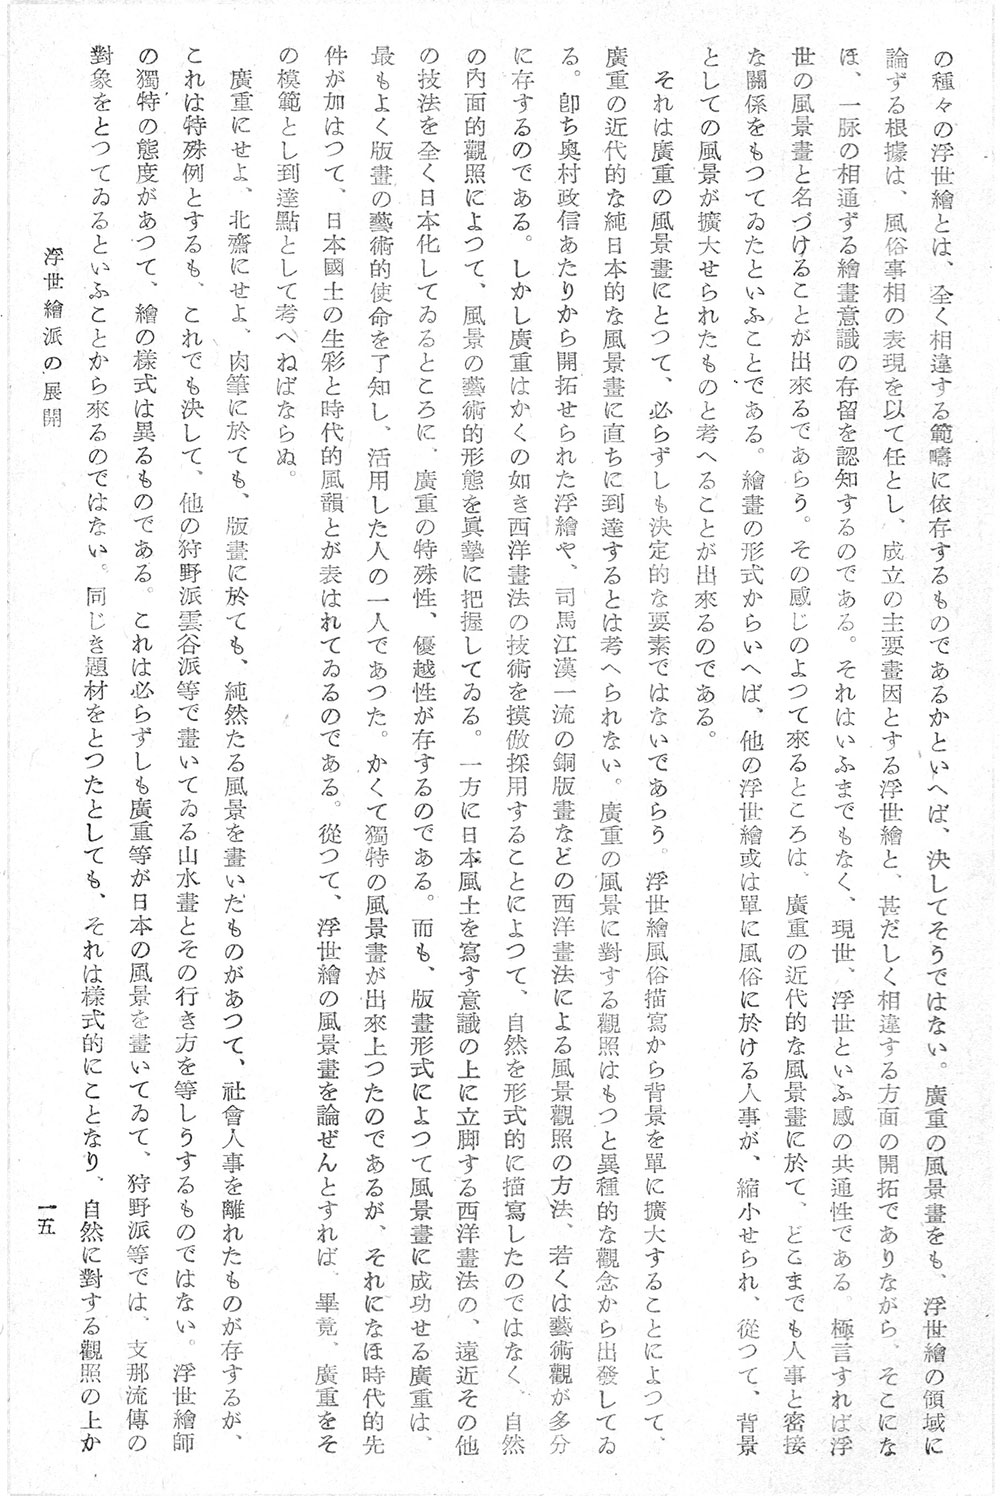 の種々の浮世繪とは、全く相違する範疇に依存するものであるかといへば、決してそうではない。廣重の風景畫をも、浮世繪の領域に
論ずる根據は、風俗事相の表現を以て任とし、成立の主要畫因とする浮世繪と、甚だしく相違する方面の開拓でありながら、そこにな
ほ、一脈の相通ずる繪畫意識の存留を認知するのである。それはいふまでもなく、現世、浮世といふ感の共通性である。極言すれば浮
世の風景畫と名づけることが出來るであらう。その感じのよつて來るところは、廣重の近代的な風景畫に於て、どこまでも人事と密接
な關係をもつてゐたといふことである。繪畫の形式からいへば、他の浮世繪或は單に風俗に於ける人事が、縮小せられ、從つて、背景
としての風景が擴大せられたものと考へることが出來るのである。
それは廣重の風景畫にとつて、必らずしも決定的な要素ではないであらう。浮世繪風俗描寫から背景を單に擴大することによつて、
廣重の近代的な純日本的な風景畫に直ちに到達するとは考へられない。廣重の風景に對する觀照はもつと異種的な觀念から出發してゐ
る。卽ち奥村政信あたりから開拓せられた浮繪や、司馬江漢一流の銅版畫などの西洋畫法による風景觀照の方法、若くは藝術觀が多分
に存するのである。しかし廣重はかくの如き西洋畫法の技術を摸倣採用することによつて、自然を形式的に描寫したのではなく、自然
の內面的觀照によつて、風景の藝術的形態を眞摯に把握してゐる。一方に日本風土を寫す意識の上に立脚する西洋畫法の、遠近その他
の技法を全く日本化してゐるところに、廣重の特殊性、優越性が存するのである。而も、版畫形式によつて風景畫に成功せる廣重は、
最もよく版畫の藝術的使命を了知し、活用した人の一人であつた。かくて獨特の風景畫が出來上つたのであるが、それになほ時代的先
件が加はつて、日本國土の生彩と時代的風韻とが表はれてゐるのである。從つて、浮世繪の風景畫を論ぜんとすれば、畢竟、廣重をそ
の模範とし到達點として考へねばならぬ。
廣重にせよ、北齋にせよ、肉筆に於ても、版畫に於ても、純然たる風景を畫いたものがあつて、社會人事を離れたものが存するが、
これは特殊例とするも、これでも決して、他の狩野派雲谷派等で畫いてゐる山水畫とその行き方を等しうするものではない。浮世繪師
の獨特の態度があつて、繪の樣式は異るものである。これは必らずしも廣重等が日本の風景を畫いてゐて、狩野派等では、支那流傳の
對象をとつてゐるといふことから來るのではない。同じき題材をとつたとしても、それは樣式的にことなり、自然に對する觀照の上か
浮世繪派の展開
一五